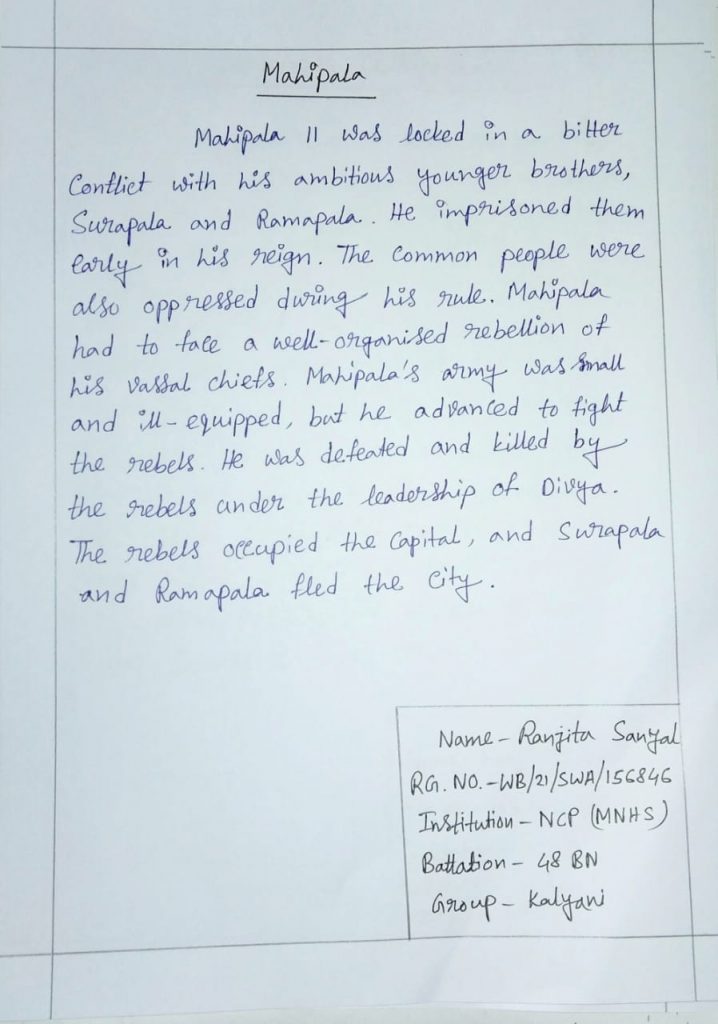 Mahipala
Mahipala II was locked in a bitter
Conflict with his ambitious younger brothers,
Surapala and Ramapala. He imprisoned them
early in his reign. The Common people were
also oppressed during his rule. Mahipala
had to face a well-organised rebellion of
his vassal chiefs. Mahipala's army was small
and ill-equipped, but he advanced to fight
the rebels. He was defeated and killed by
the rebels under the leadership of Divya.
The rebels occupied the Capital, and Surapala
and Ramapala fled the City.
Name - Ranjita Sanyal
RG. NO. - WB/21/SWA/156846
Institution - NCP (MNHS)
Battation - 48 BN
Group - Kalyani